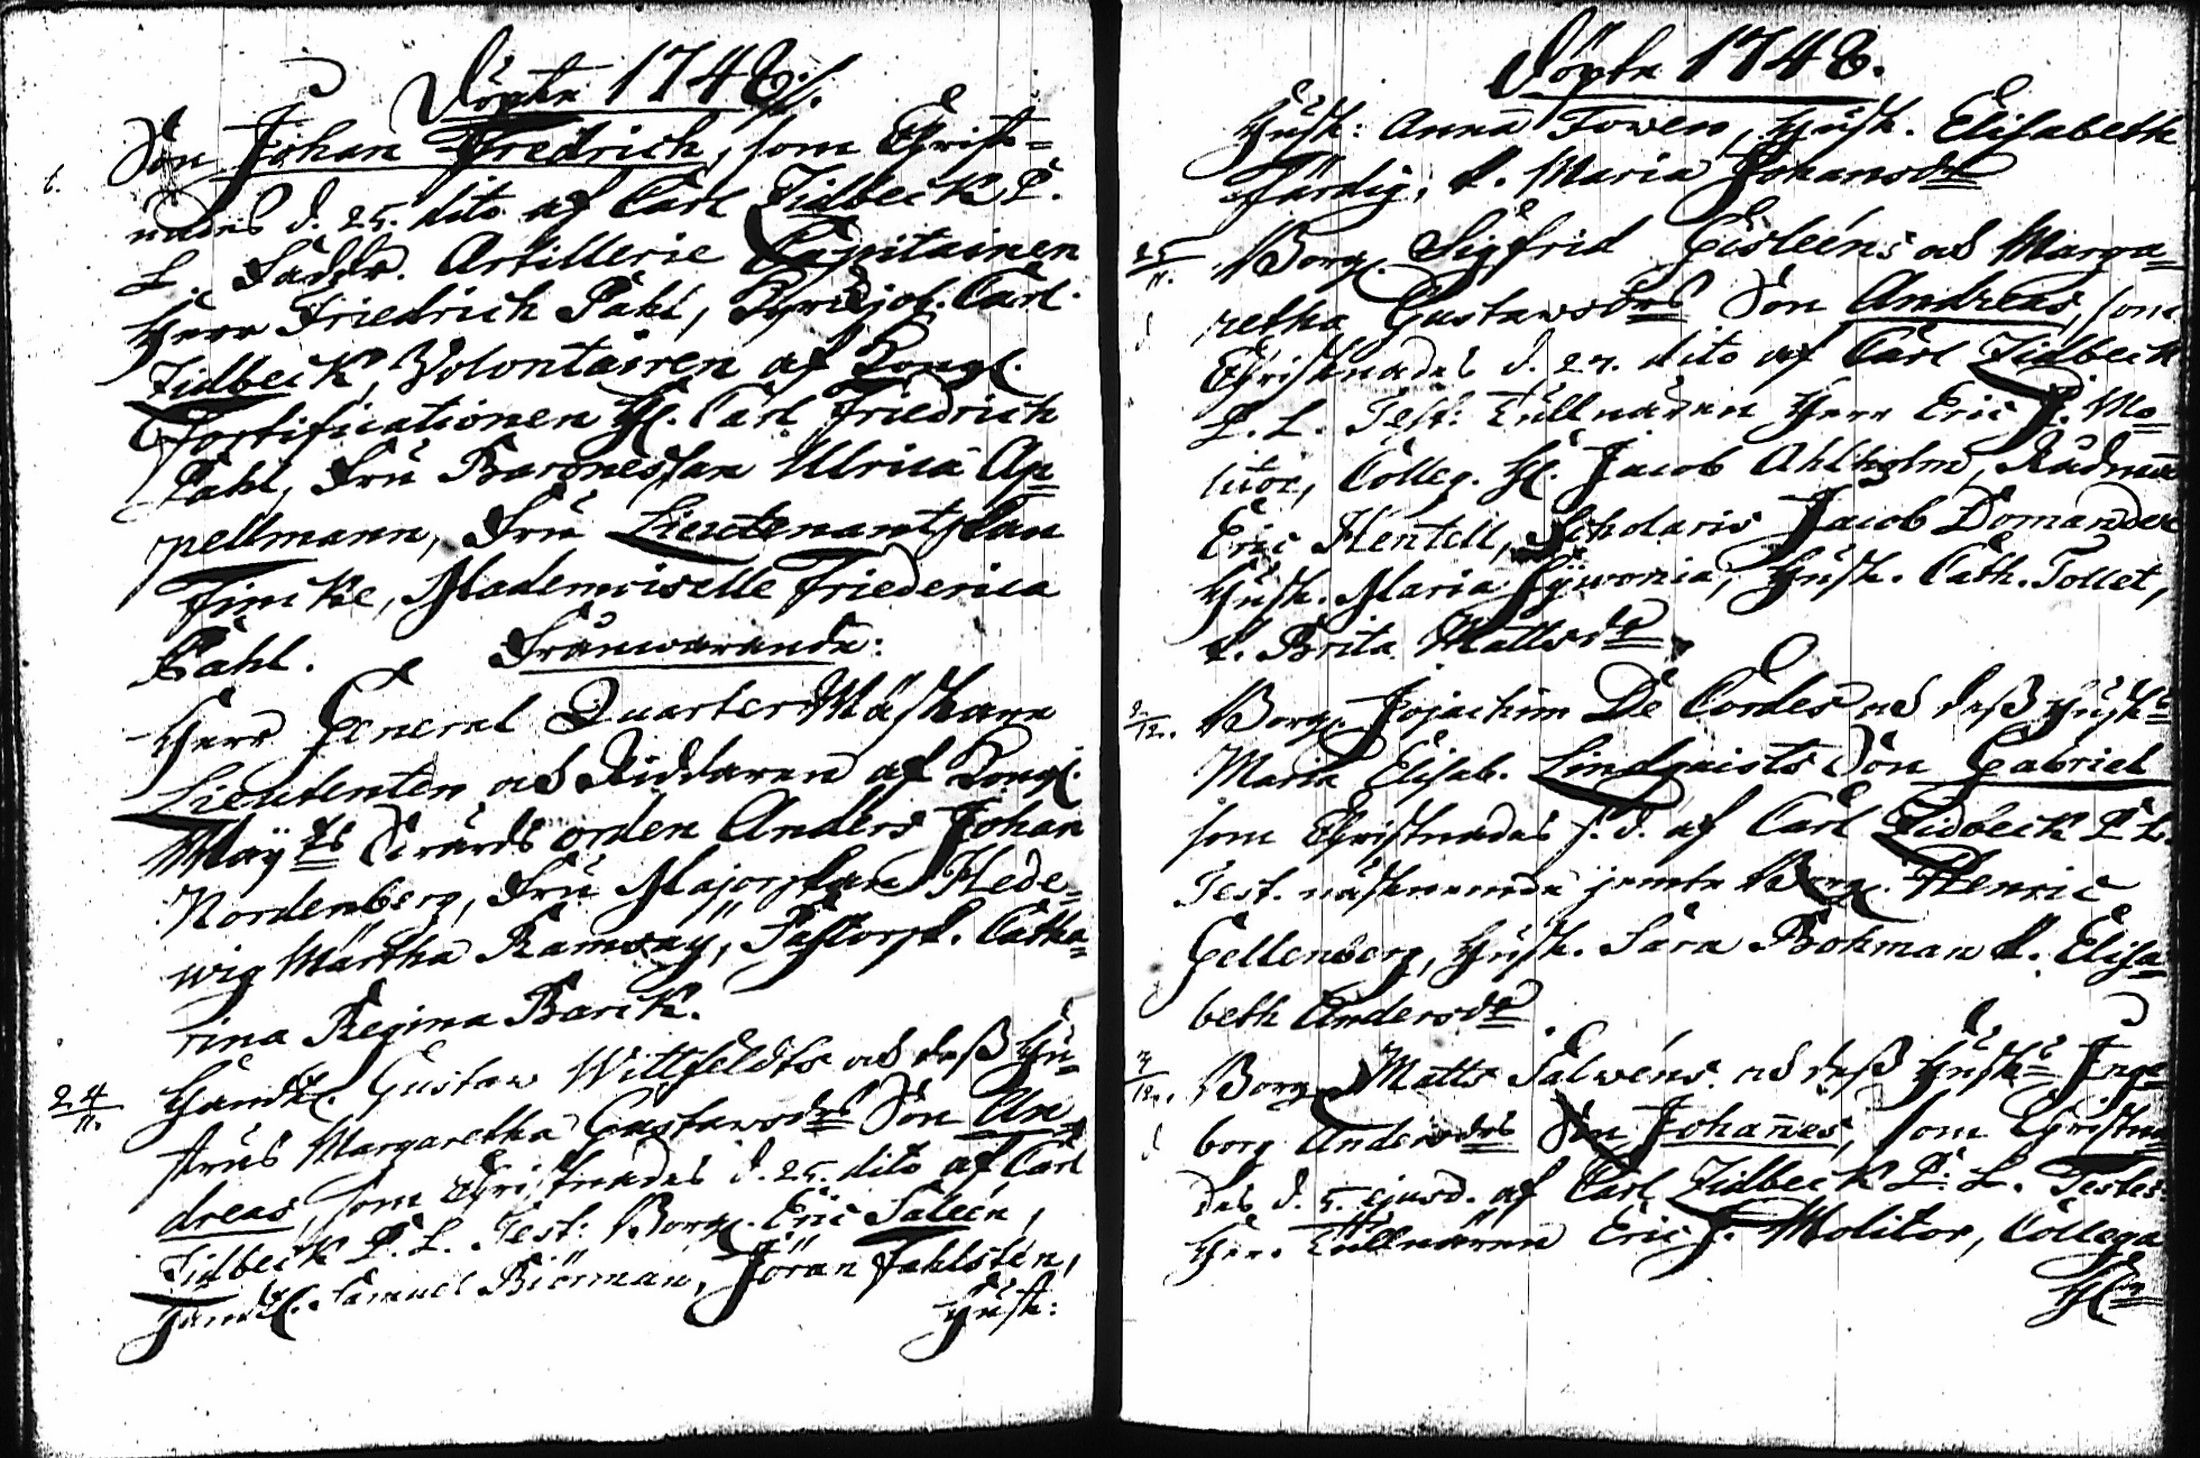 Döpte 1748.
Son Johan Fredrich, som Christ=
nades d. 25. dito af Carl Lidbeck P.
L. Faddr. Artillerie Capitainen
Herr Friedrich Pahl, Kyrckjoh. Carl
Lidbeck, Volontairen af Kongl.
Fortificationen H. Carl Friedrich
Pahl, Fru Baronessan Ulrica Ap=
pellmann, Fru Lieutenantskan
Fincke, Mademoiselle Friederica
Pahl. Frånwarande:
Herr General Quarter Mästare
Lieutenten och Riddaren af Kongl.
Maÿts Swärds orden Anders Johan
Nordenberg, Fru Majorskan Hede=
wig Märtha Ramsay, Pastorsk. Catha=
rina Regina Barck.
24/11. Handl. Gustaw Wittfeldts och dess Hu=
strus Margaretha Gustawsdrs Son An=
dreas, som Christnades d. 25. dito af Carl
Lidbeck P. L. Test: Borg. Eric Saleen,
Handl. Samuel Biörman, Jöran Fahlsten,
Hust:
Döpte 1748.
Hust: Anna Fowen, Hust. Elisabeth
Färdig, P. Maria Johansdr
25/11. Borg. Sigfrid Gisleens och Marga=
retha Gustawsdrs Son Andreas, som
Christnades d. 27. dito af Carl Lidbeck
P. L. Test: Tullnären Herr Eric J. Mo=
litor, Colleg. H. Jacob Ahlholm, Rådman
Eric Flentell, Scholaris Jacob Domander
Hust. Maria Hust. Cath. Tollet,
P. Brita Mattsdr
2/12. Borg. Jojachim De Cordes och dess Hustrs
Maria Elisab. Lindquists Son Gabriel
som Christnades s. d. af Carl Lidbeck P. L.
Test. näst jemte Borg. Henric
Gellenberg, Hust. Sara Bohman P. Elisa=
beth Andersdr
4/12. Borg. Matts Salwens och dess Hustrs Inge=
borg Andersdrs Son Johañes, som Christna=
des d. 5. ejusd. af Carl Lidbeck P. L. Testes
Herr Tullnären Eric J. Molitor, Collega
Hr